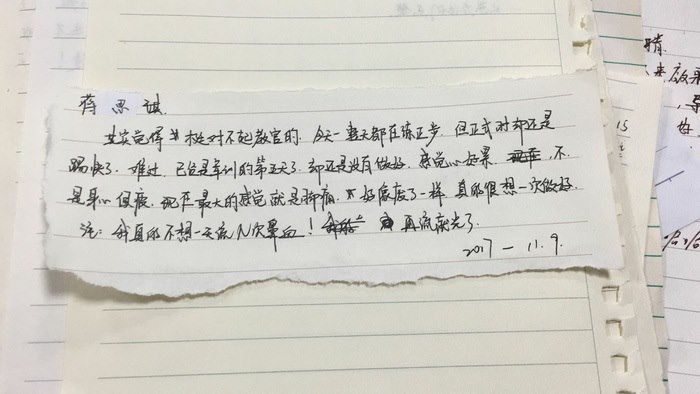 蒋思琪
其实觉得 挺对不起教官的。今天一整天都在练正步,但正式时却还是
踢快了。难过,已经是军训的第五天了,却还是没有做好。感觉心好累,不
是身心俱疲。现在最大的感觉就是脚痛,好像废了一样,真的很想一次做好。
注:我真的不想一天流N次鼻血!再流就光了。
2017-11.9.
晴
15